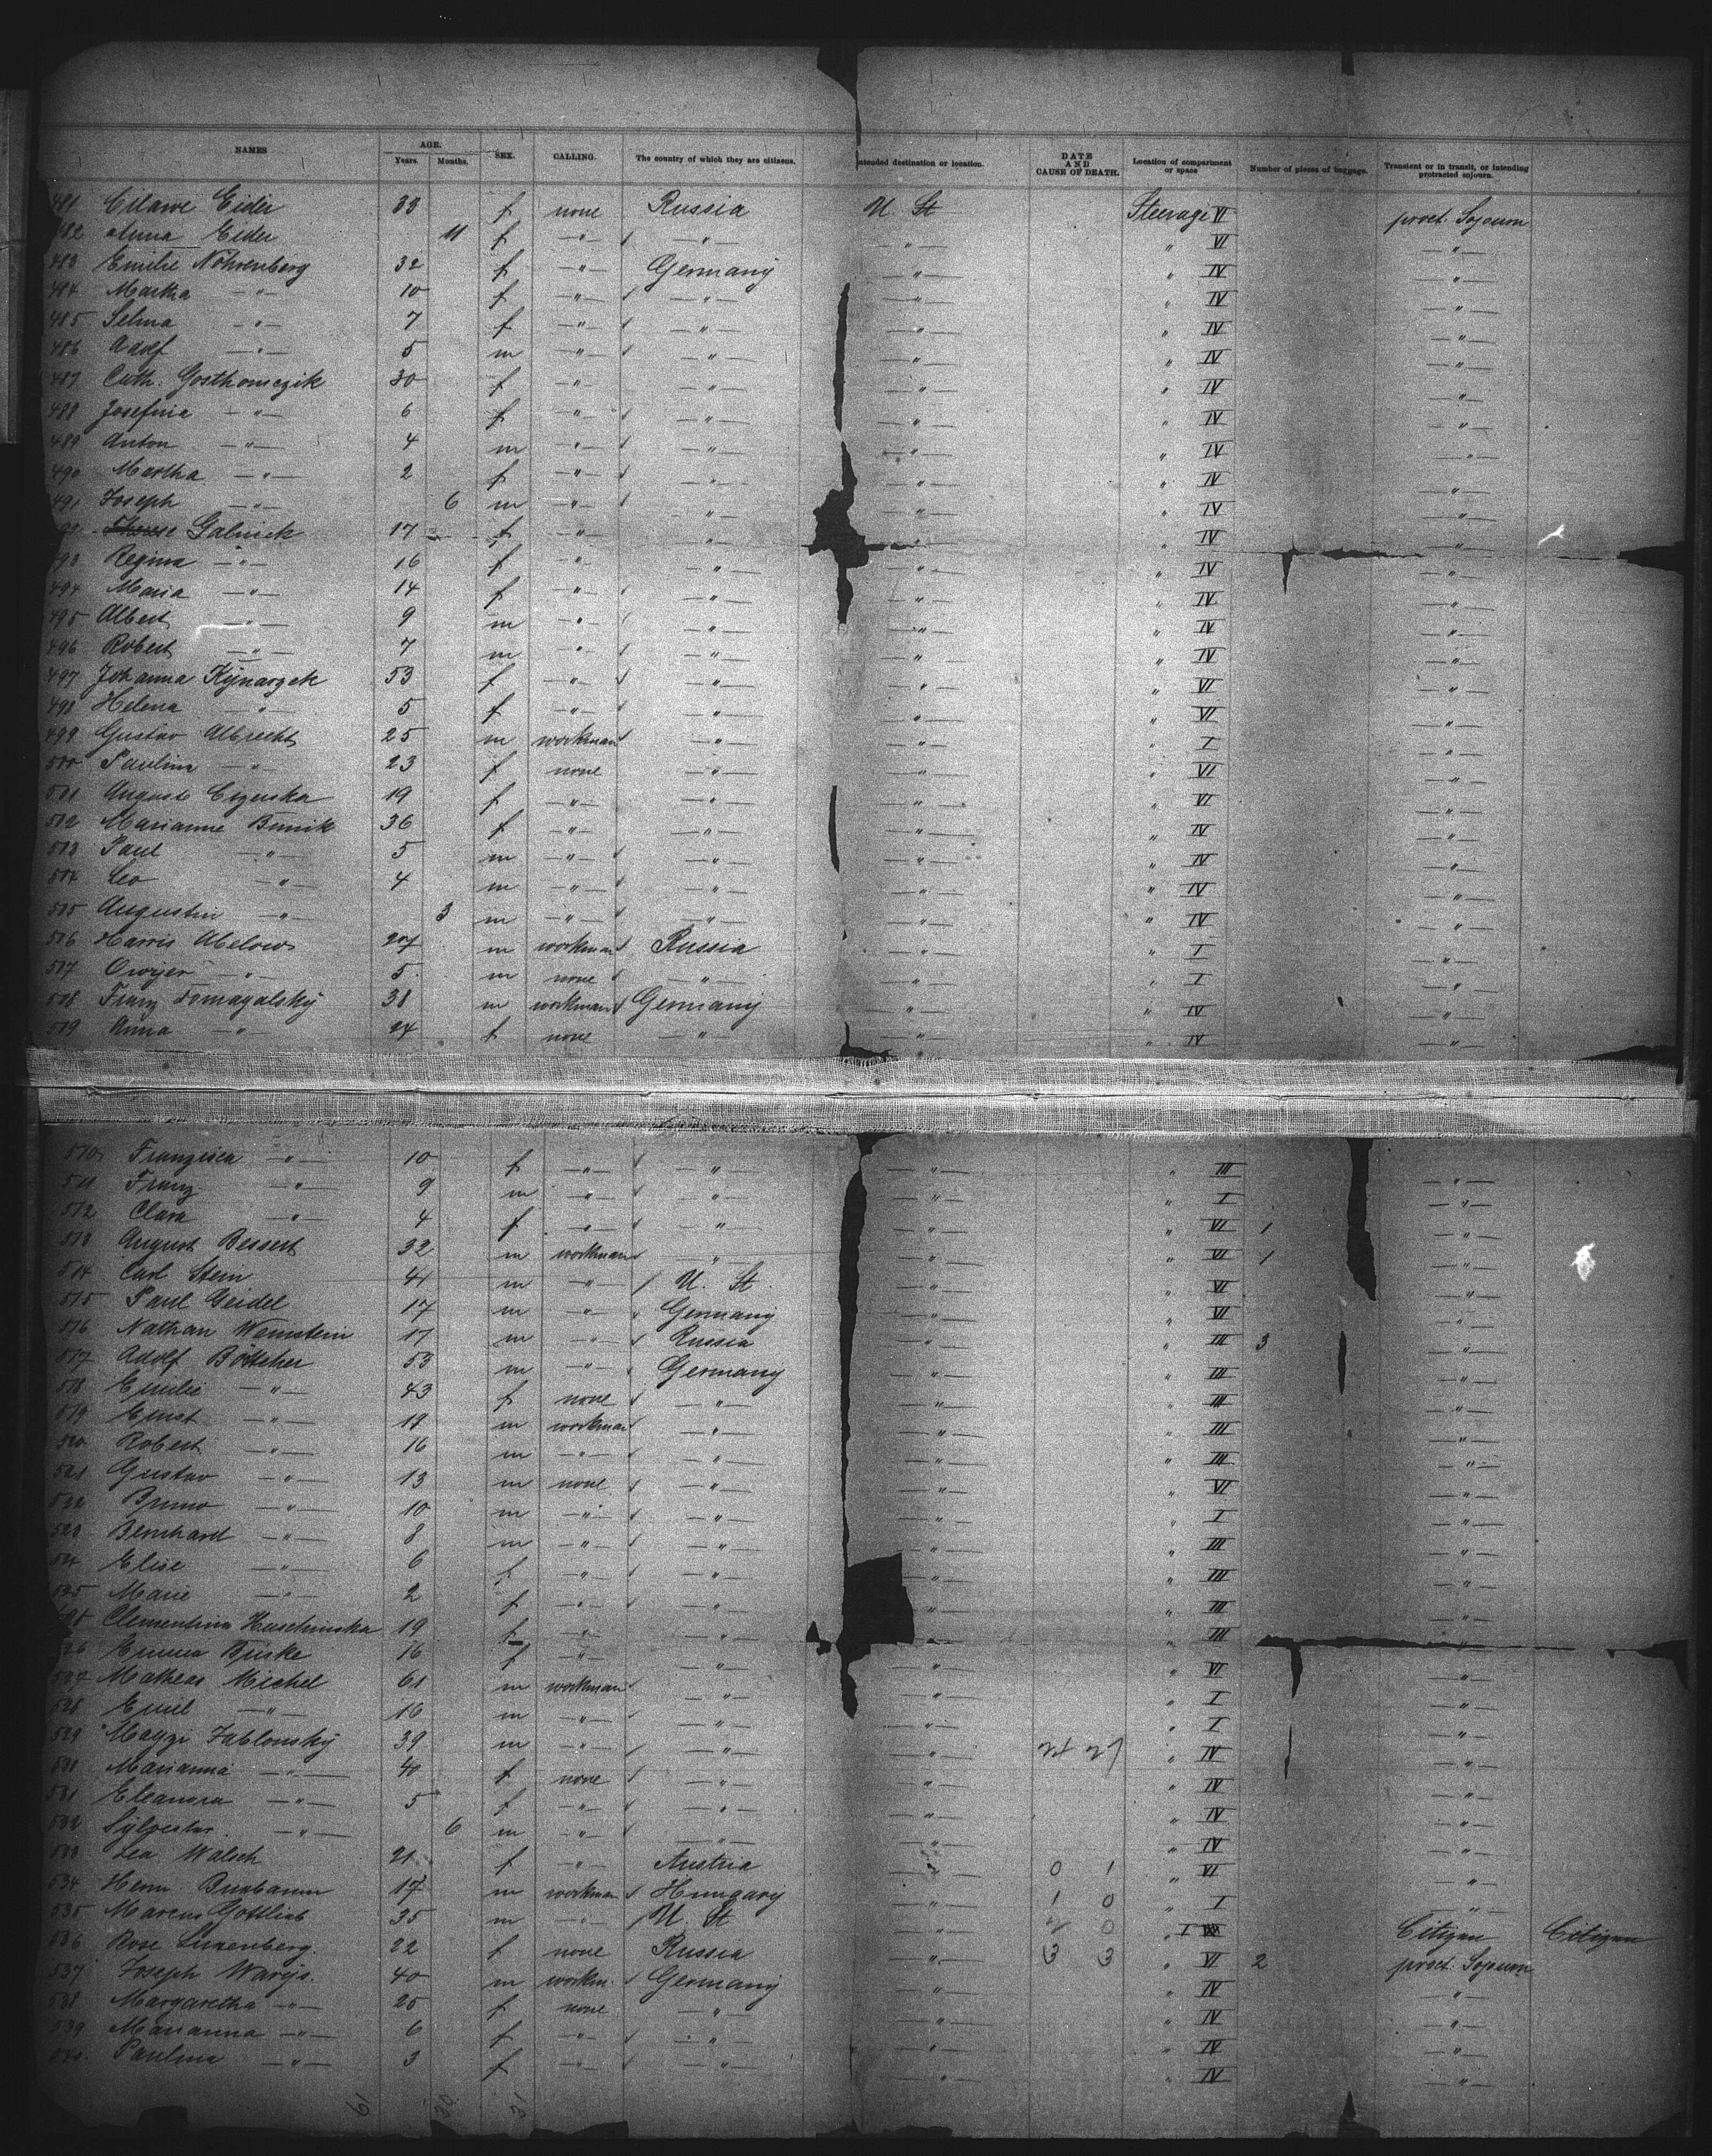 NAMES AGE. Years. Months. SEX. CALLING. The country of which they are citizens. Intended destination or location. DATE AND CAUSE OF DEATH. Location of compartment or space Number of pieces of baggage. Transient or in transit, or intending protracted sojourn.
481 Eider 33 f none Russia U. St Steerage VI protr. Sojourn
482 Anna Eider 11 f -"- -"- -"- " VI -"-
483 Emilie Nöhrenberg 32 f -"- Germany -"- " IV -"-
484 Martha -"- 10 f -"- -"- -"- " IV -"-
485 Selma -"- 7 f -"- -"- -"- " IV -"-
486 Adolf -"- 5 m -"- -"- -"- " IV -"-
487 Cath. Gosthomczik 30 f -"- -"- -"- " IV -"-
488 Josefina -"- 6 f -"- -"- -"- " IV -"-
489 Anton -"- 4 m -"- -"- -"- " IV -"-
490 Martha -"- 2 f -"- -"- -"- " IV -"-
491 Joseph -"- 6 m -"- -"- -"- " IV -"-
492 Galnick 17 f -"- -"- -"- " IV -"-
493 Regina -"- 16 f -"- -"- -"- " IV -"-
494 Maria -"- 14 f -"- -"- -"- " IV -"-
495 Albert -"- 9 m -"- -"- -"- " IV -"-
496 Robert -"- 7 m -"- -"- -"- " IV -"-
497 Johanna 53 f -"- -"- -"- " VI -"-
498 Helena -"- 5 f -"- -"- -"- " VI -"-
499 Gustav Albrecht 25 m workman -"- -"- " I -"-
500 Paulina -"- 23 f none -"- -"- " VI -"-
501 Auguste 19 f -"- -"- -"- " VI -"-
502 Marianne 36 f -"- -"- -"- " IV -"-
503 Paul -"- 5 m -"- -"- -"- " IV -"-
504 Leo -"- 4 m -"- -"- -"- " IV -"-
505 Augustin -"- 3 m -"- -"- -"- " IV -"-
506 Harris Abelow 27 m workman Russia -"- " I -"-
507 -"- 5 m none -"- -"- " I -"-
508 Franz Tomazalsky 38 m workman Germany -"- " IV -"-
509 Anna -"- 24 f none -"- -"- " IV -"-
510 Franzisca -"- 10 f -"- -"- -"- " III -"-
511 Franz -"- 9 m -"- -"- -"- " I -"-
512 Clara -"- 4 f -"- -"- -"- " VI 1 -"-
513 August Bessert 32 m workman -"- -"- " VI 1 -"-
514 Carl Stein 41 m -"- U. St -"- " VI -"-
515 Paul Geidel 17 m -"- Germany -"- " VI -"-
516 Nathan Weinstein 17 m -"- Russia -"- " III 3 -"-
517 Adolf Böttcher 53 m -"- Germany -"- " III -"-
518 Emilie -"- 43 f none -"- -"- " III -"-
519 Ernst -"- 18 m workman -"- -"- " III -"-
520 Robert -"- 16 m -"- -"- -"- " III -"-
521 Gustav -"- 13 m none -"- -"- " VI -"-
522 Bruno -"- 10 m -"- -"- -"- " I -"-
523 Bernhard -"- 8 m -"- -"- -"- " III -"-
524 Elise -"- 6 f -"- -"- -"- " III -"-
525 Marie -"- 2 f -"- -"- -"- " III -"-
525 Clementina Huschinska 19 f -"- -"- " III -"-
526 Emma 16 f -"- -"- -"- " VI -"-
527 Matheas Michel 61 m workman -"- -"- " I -"-
528 Emil -"- 16 m -"- -"- -"- " I -"-
529 Jablonsky 39 m -"- -"- -"- " IV -"-
530 Marianna -"- 40 f none -"- -"- " IV -"-
531 Eleanora -"- 5 f -"- -"- -"- " IV -"-
532 Sylvester -"- 6 m -"- -"- -"- " IV -"-
533 Lea Walsch 21 f -"- Austria -"- 0 1 " VI -"-
534 Herm. Buxbaum 17 m workman Hungary -"- 1 0 " I -"-
535 Marcus Gottlieb 35 m -"- U. St -"- 0 " I Citizen Citizen
536 Rose Luxenberg. 22 f none Russia -"- 3 3 " VI 2 protr. Sojourn
537 Joseph 40 m workm. Germany -"- " IV -"-
538 Margaretha -"- 25 f none -"- -"- " IV -"-
539 Marianna -"- 6 f -"- -"- -"- " IV -"-
540. Paulina -"- 3 f -"- -"- -"- " IV -"-